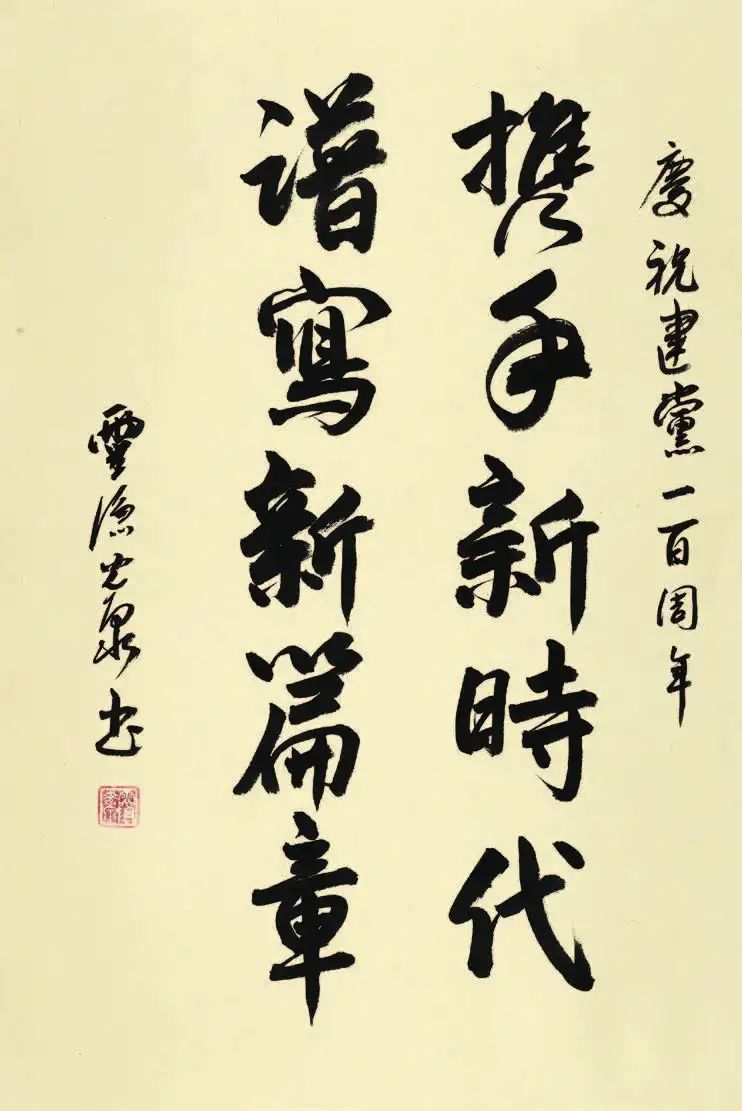 慶祝建黨一百周年
携手新時代
譜寫新篇章
靈隱光泉书